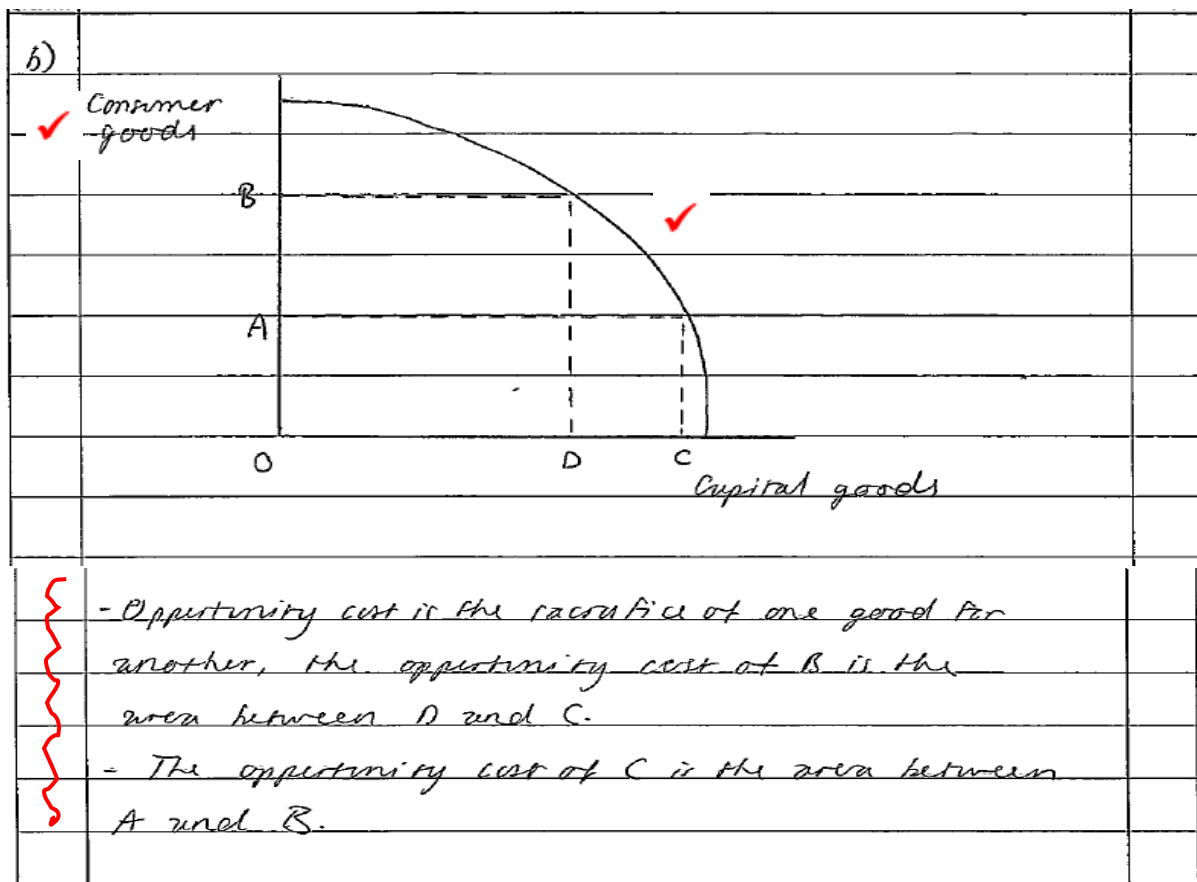 b)
Consumer
goods
B
A
O
D
C
Capital goods
- Oppertunity cost is the sacrafice of one good for
another, the oppertunity cost of B is the
area between D and C.
- The oppertunity cost of C is the area between
A and B.